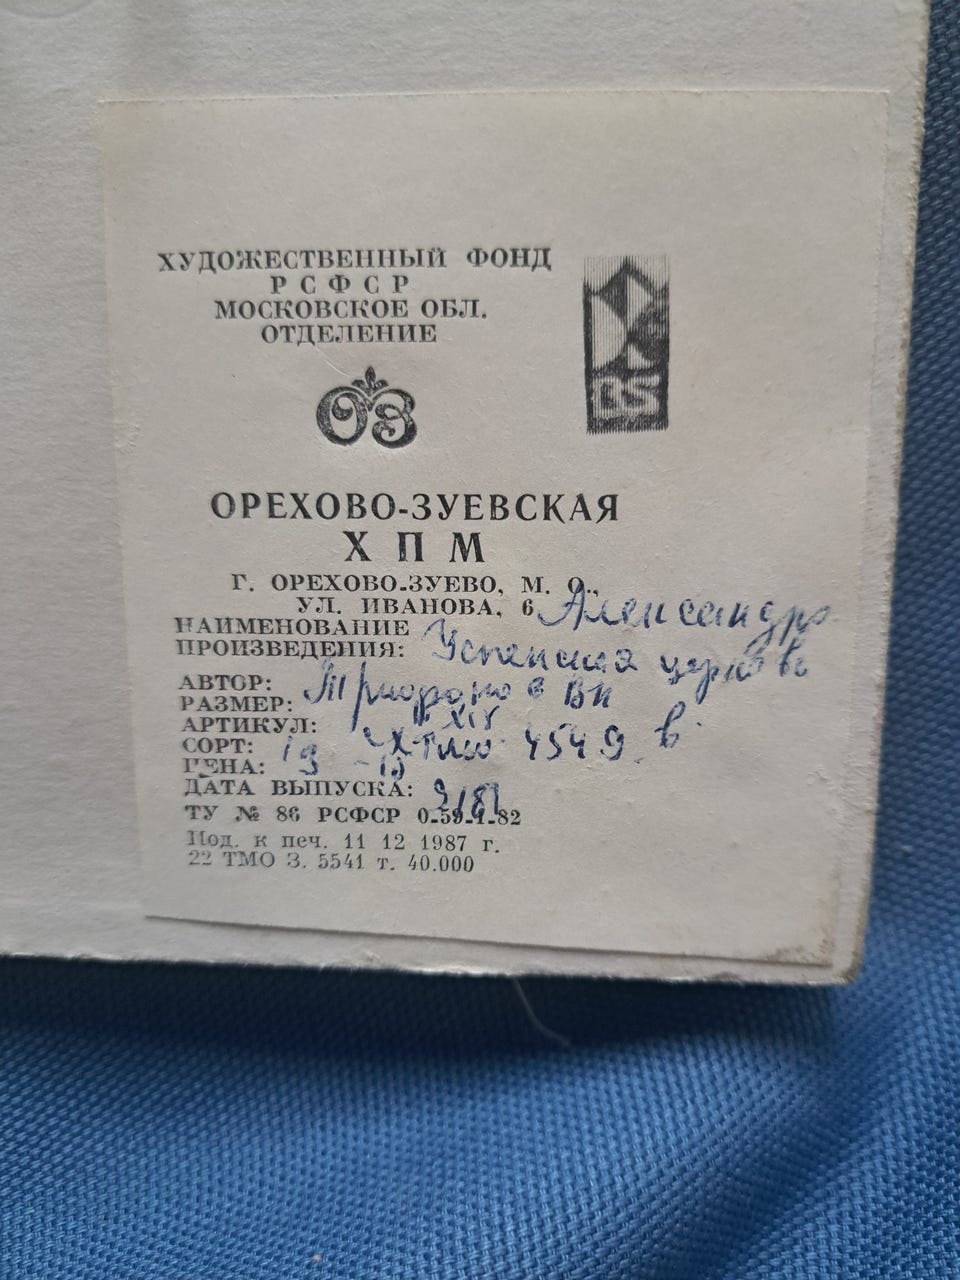 ХУДОЖЕСТВЕННЫЙ ФОНД
РСФСР
МОСКОВСКОЕ ОБЛ.
ОТДЕЛЕНИЕ
ОЗ
BS
ОРЕХОВО-ЗУЕВСКАЯ
ХПМ
Г. ОРЕХОВО-ЗУЕВО, М. О.,
УЛ. ИВАНОВА, 6
НАИМЕНОВАНИЕ Александро
ПРОИЗВЕДЕНИЯ: Успенская церковь
АВТОР:
РАЗМЕР:
АРТИКУЛ: 4549 в
СОРТ:
ЦЕНА:
ДАТА ВЫПУСКА:
ТУ № 86 РСФСР 0-59-1-82
Под. к печ. 11 12 1987 г.
22 ТМО З. 5541 т. 40.000